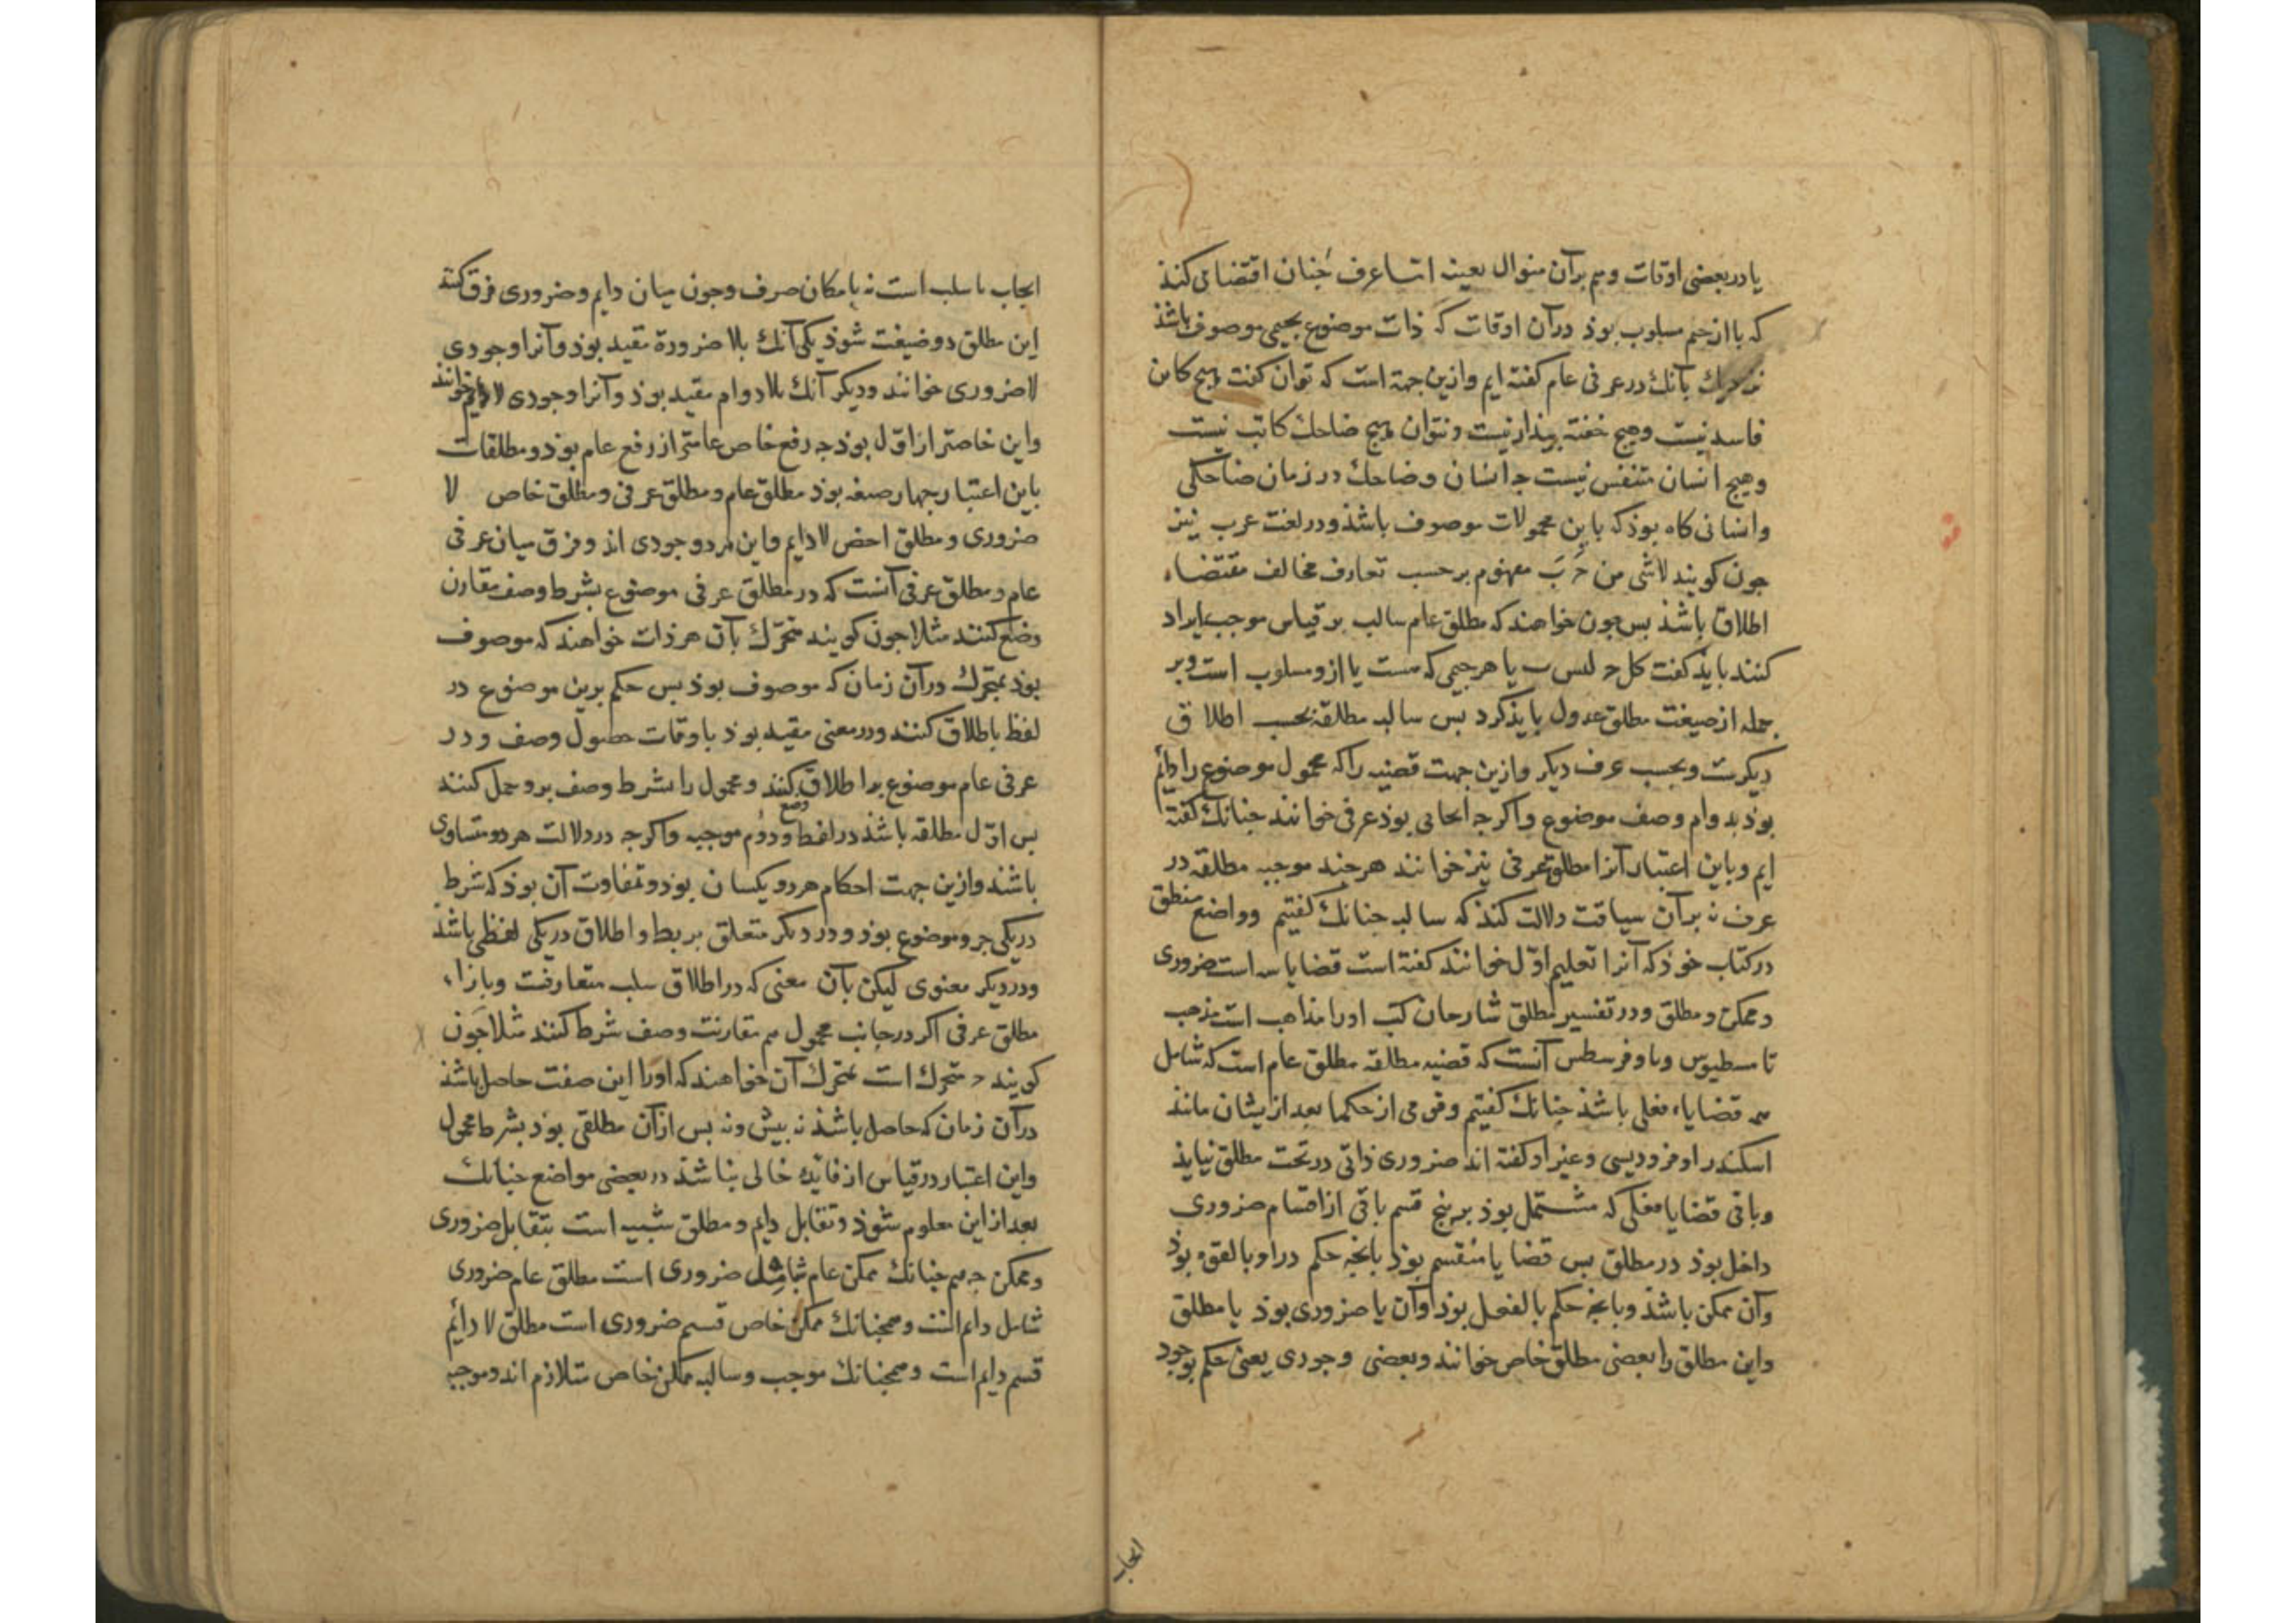 یا در بعضی اوقات و هم برآن منوال بعینه اما عرف جنان اقتضا می کند
که با از جیم مسلوب بوذ در آن اوقات که ذات موضوع بجیمی موصوف باشذ
نزدیك بآنك در عرفی عام کفته ایم و ازین جهة است که توان کفت هیج کاین
فاسد نیست و هیج خفته بیذار نیست و نتوان هیج ضاحك کاتب نیست
و هیج انسان متنفس نیست جه انسان و ضاحك در زمان ضاحکی
و انسانی کاه بوذ که باین محمولات موصوف باشذ و در لغت عرب نیز
جون کویند لاشی من ج ب مفهوم برحسب تعارف مخالف مقتضاء
اطلاق باشذ بس جون خواهند که مطلق عام سالب بر قیاس موجب ایراد
کنند بایذ کفت کل ج لیس ب یا هر جیمی که هست با ازو مسلوب است و بر
جمله از صیغت مطلق عدول بایذ کرد بس سالبه مطلقه بحسب اطلاق
دیکرست و بحسب عرف دیکر و ازین جهت قضیه را که محمول موضوع را دائم
بوذ بدوام وصف موضوع و اکر جه ایجابی بوذ عرفی خوانند جنانك کفته
ایم و باین اعتبار آنرا مطلق عرفی نیز خوانند هر جند موجبه مطلقه در
عرف نه بر آن سیاقت دلالت کند که سالبه جنانك کفتیم و واضع منطق
در کتاب خوذ که آنرا تعلیم اول خوانند کفته است قضایا سه است ضروری
و ممکن و مطلق و در تفسیر مطلق شارحان کتب او را مذاهب است مذهب
تامسطیوس و ثاوفرسطس آنست که قضیه مطلقه مطلق عام است که شامل
همه قضایاء فعلی باشذ جنانك کفتیم و قومی از حکما بعد ازیشان مانند
اسکندر افروذیسی و غیر او کفته اند ضروری ذاتی در تحت مطلق نیایذ
و باقی قضایا فعلی که مشتمل بوذ بر پنج قسم باقی از اقسام ضروری
داخل بوذ در مطلق بس قضایا منقسم بوذ بآنجه حکم درو بالقوه بوذ
و آن ممکن باشذ و بآنجه حکم بالفعل بوذ و آن یا ضروری بوذ یا مطلق
و این مطلق را بعضی مطلق خاص خوانند و بعضی وجودی یعنی حکم بوجود
ایجاب
ایجاب یا سلب است نه بامکان صرف و جون میان دایم و ضروری فرق کنند
این مطلق دو صیغت شوذ یکی آنك بلا ضرورة مقید بوذ و آنرا وجودی
لاضروری خوانند و دیکر آنك بلا دوام مقید بوذ و آنرا وجودی لادایم خوانند
و این خاصتر از اول بوذ جه رفع خاص عامتر از رفع عام بوذ و مطلقات
باین اعتبار جهار صیغه بوذ مطلق عام و مطلق عرفی و مطلق خاص لا
ضروری و مطلق اخص لادایم و این هر دو وجودی اند و فرق میان عرفی
عام و مطلق عرفی آنست که در مطلق عرفی موضوع بشرط وصف مقارن
وضع کنند مثلا جون کویند متحرك بآن هر ذات خواهند که موصوف
بوذ بمتحرك در آن زمان که موصوف بوذ بس حکم برین موضوع در
لفظ باطلاق کنند و در معنی مقید بوذ باوقات حصول وصف و در
عرفی عام موضوع را اطلاق کنند و محمول را بشرط وصف برو حمل کنند
بس اول مطلقه باشذ در لفظ وضع و دوم موجبه و اکر جه در دلالت هر دو متساوی
باشند و ازین جهت احکام هر دو یکسان بوذ و تفاوت آن بوذ که شرط
در یکی جزو موضوع بوذ و در دیکر متعلق بربط و اطلاق در یکی لفظی باشذ
و در دیکر معنوی لیکن بآن معنی که در اطلاق سلب متعارفست و بازاء
مطلق عرفی اکر در جانب محمول هم مقارنت وصف شرط کنند مثلا جون
کویند ج متحرك است بمتحرك آن خواهند که او را این صفت حاصل باشذ
در آن زمان که حاصل باشذ نه بیش و نه بس از آن مطلقی بوذ بشرط محمول
و این اعتبار در قیاس از فایده خالی نباشذ در بعضی مواضع جنانك
بعد از این معلوم شوذ و تقابل دایم و مطلق شبیه است بتقابل ضروری
و ممکن جه همجنانك ممکن عام شامل ضروری است مطلق عام ضروری
شامل دایم است و همجنانك ممکن خاص قسیم ضروری است مطلق لا دائم
قسیم دایم است و همجنانك موجب و سالبه ممکن خاص متلازم اند و موجبه